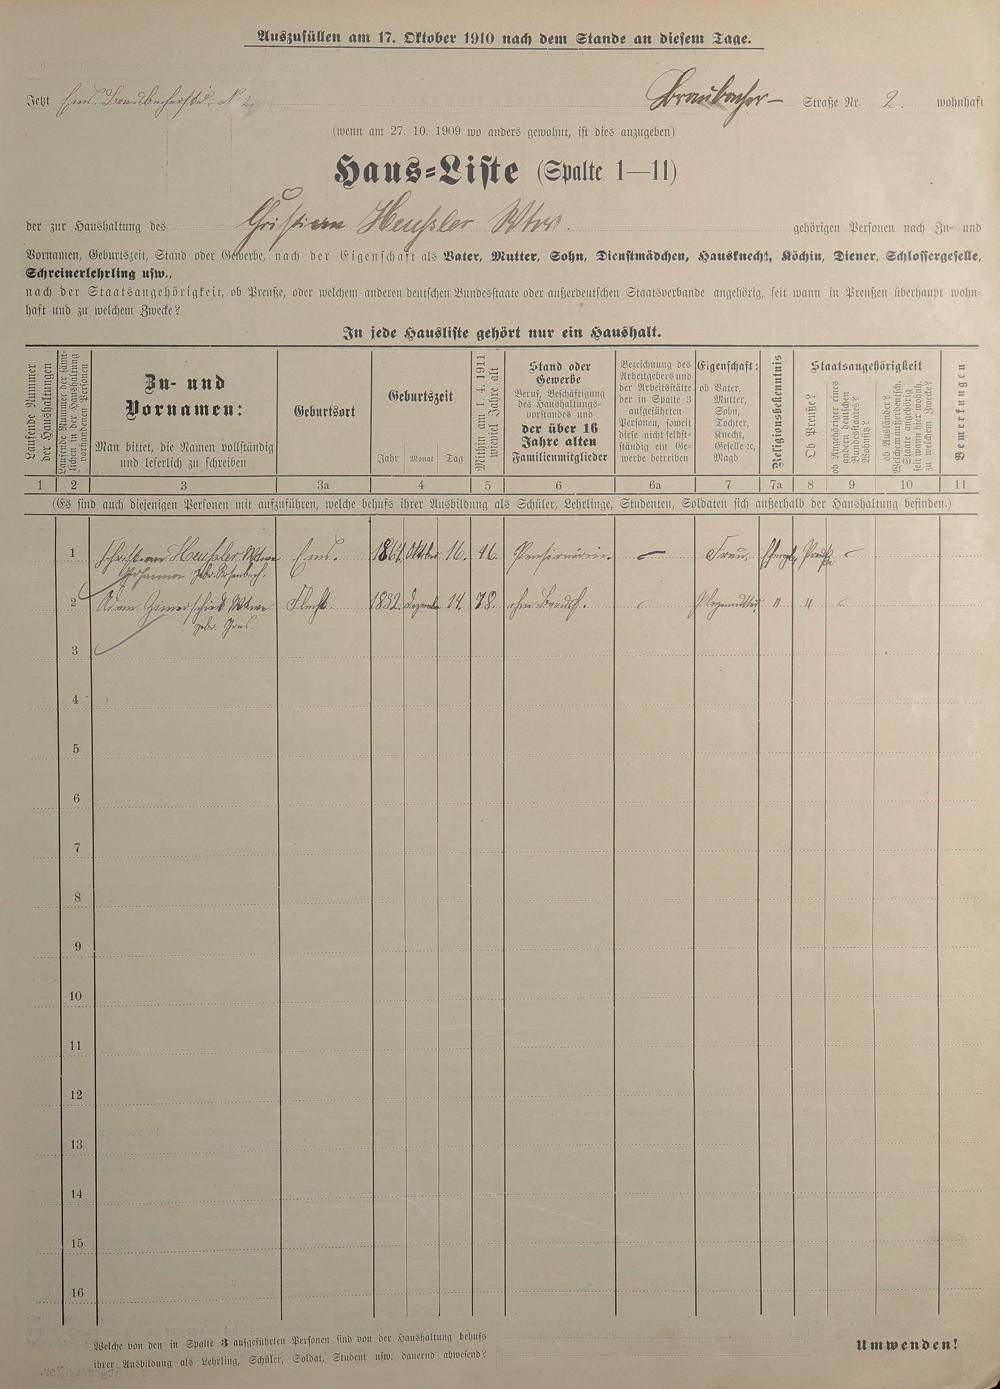 Auszufüllen am 17. Oktober 1910 nach dem Stande an diesem Tage.
Jetzt Ems. Braubacherstr. N 2. Braubacher- Straße Nr. 2. wohnhaft
(wenn am 27. 10. 1909 wo anders gewohnt, ist dies anzugeben)
Haus-Liste (Spalte 1—11)
der zur Haushaltung des Christian Heußler Wtw. gehörigen Personen nach Zu- und
Vornamen, Geburtszeit, Stand oder Gewerbe, nach der Eigenschaft als Vater, Mutter, Sohn, Dienstmädchen, Hausknecht, Köchin, Diener, Schlossergeselle,
Schreinerlehrling usw.,
nach der Staatsangehörigkeit, ob Preuße, oder welchem anderen deutschen Bundesstaate oder außerdeutschen Staatsverbande angehörig, seit wann in Preußen überhaupt wohn-
haft und zu welchem Zwecke?
In jede Hausliste gehört nur ein Haushalt.
Laufende Nummer
der Haushaltungen
Laufende Nummer der sämt-
lichen in der Haushaltung
vorhandenen Personen
Zu- und
Vornamen:
Man bittet, die Namen vollständig
und leserlich zu schreiben
Geburtsort
Geburtszeit
Jahr Monat Tag
Mithin am 1. 4. 1911
wieviel Jahre alt
Stand oder
Gewerbe
Beruf, Beschäftigung
des Haushaltungs-
vorstandes und
der über 16
Jahre alten
Familienmitglieder
Bezeichnung des
Arbeitgebers und
der Arbeitsstätte
der in Spalte 3
aufgeführten
Personen, soweit
diese nicht selbst-
ständig ein Ge-
werbe betreiben
Eigenschaft:
ob Vater,
Mutter,
Sohn,
Tochter,
Knecht,
Geselle ꝛc,
Magd
Religionsbekenntnis
Staatsangehörigkeit
Ob Preuße?
ob Angehöriger eines
andern deutschen
Bundesstaates?
Wohnitz?
ob Ausländer?
Welchem außerdeutsch.
Staate angehörig
seit wann hier wohnh.
zu welchem Zwecke?
Bemerkungen
1 2 3 3a 4 5 6 6a 7 7a 8 9 10 11
(Es sind auch diejenigen Personen mit aufzuführen, welche behufs ihrer Ausbildung als Schüler, Lehrlinge, Studenten, Soldaten sich außerhalb der Haushaltung befinden.)
1 Christian Heußler Witwe Ems. 1864 Oktober 16. 46. Pensionärin. — Frau. Preuße —
Johanna gebr.
2 Adam Witwe Flacht. 1832 Dezember 14. 78. ohne Beruf. — " " —
gebr.
3
4
5
6
7
8
9
10
11
12
13
14
15
16
Welche von den in Spalte 3 aufgeführten Personen sind von der Haushaltung behufs
ihrer Ausbildung als Lehrling, Schüler, Soldat, Student usw. dauernd abwesend?
Umwenden!